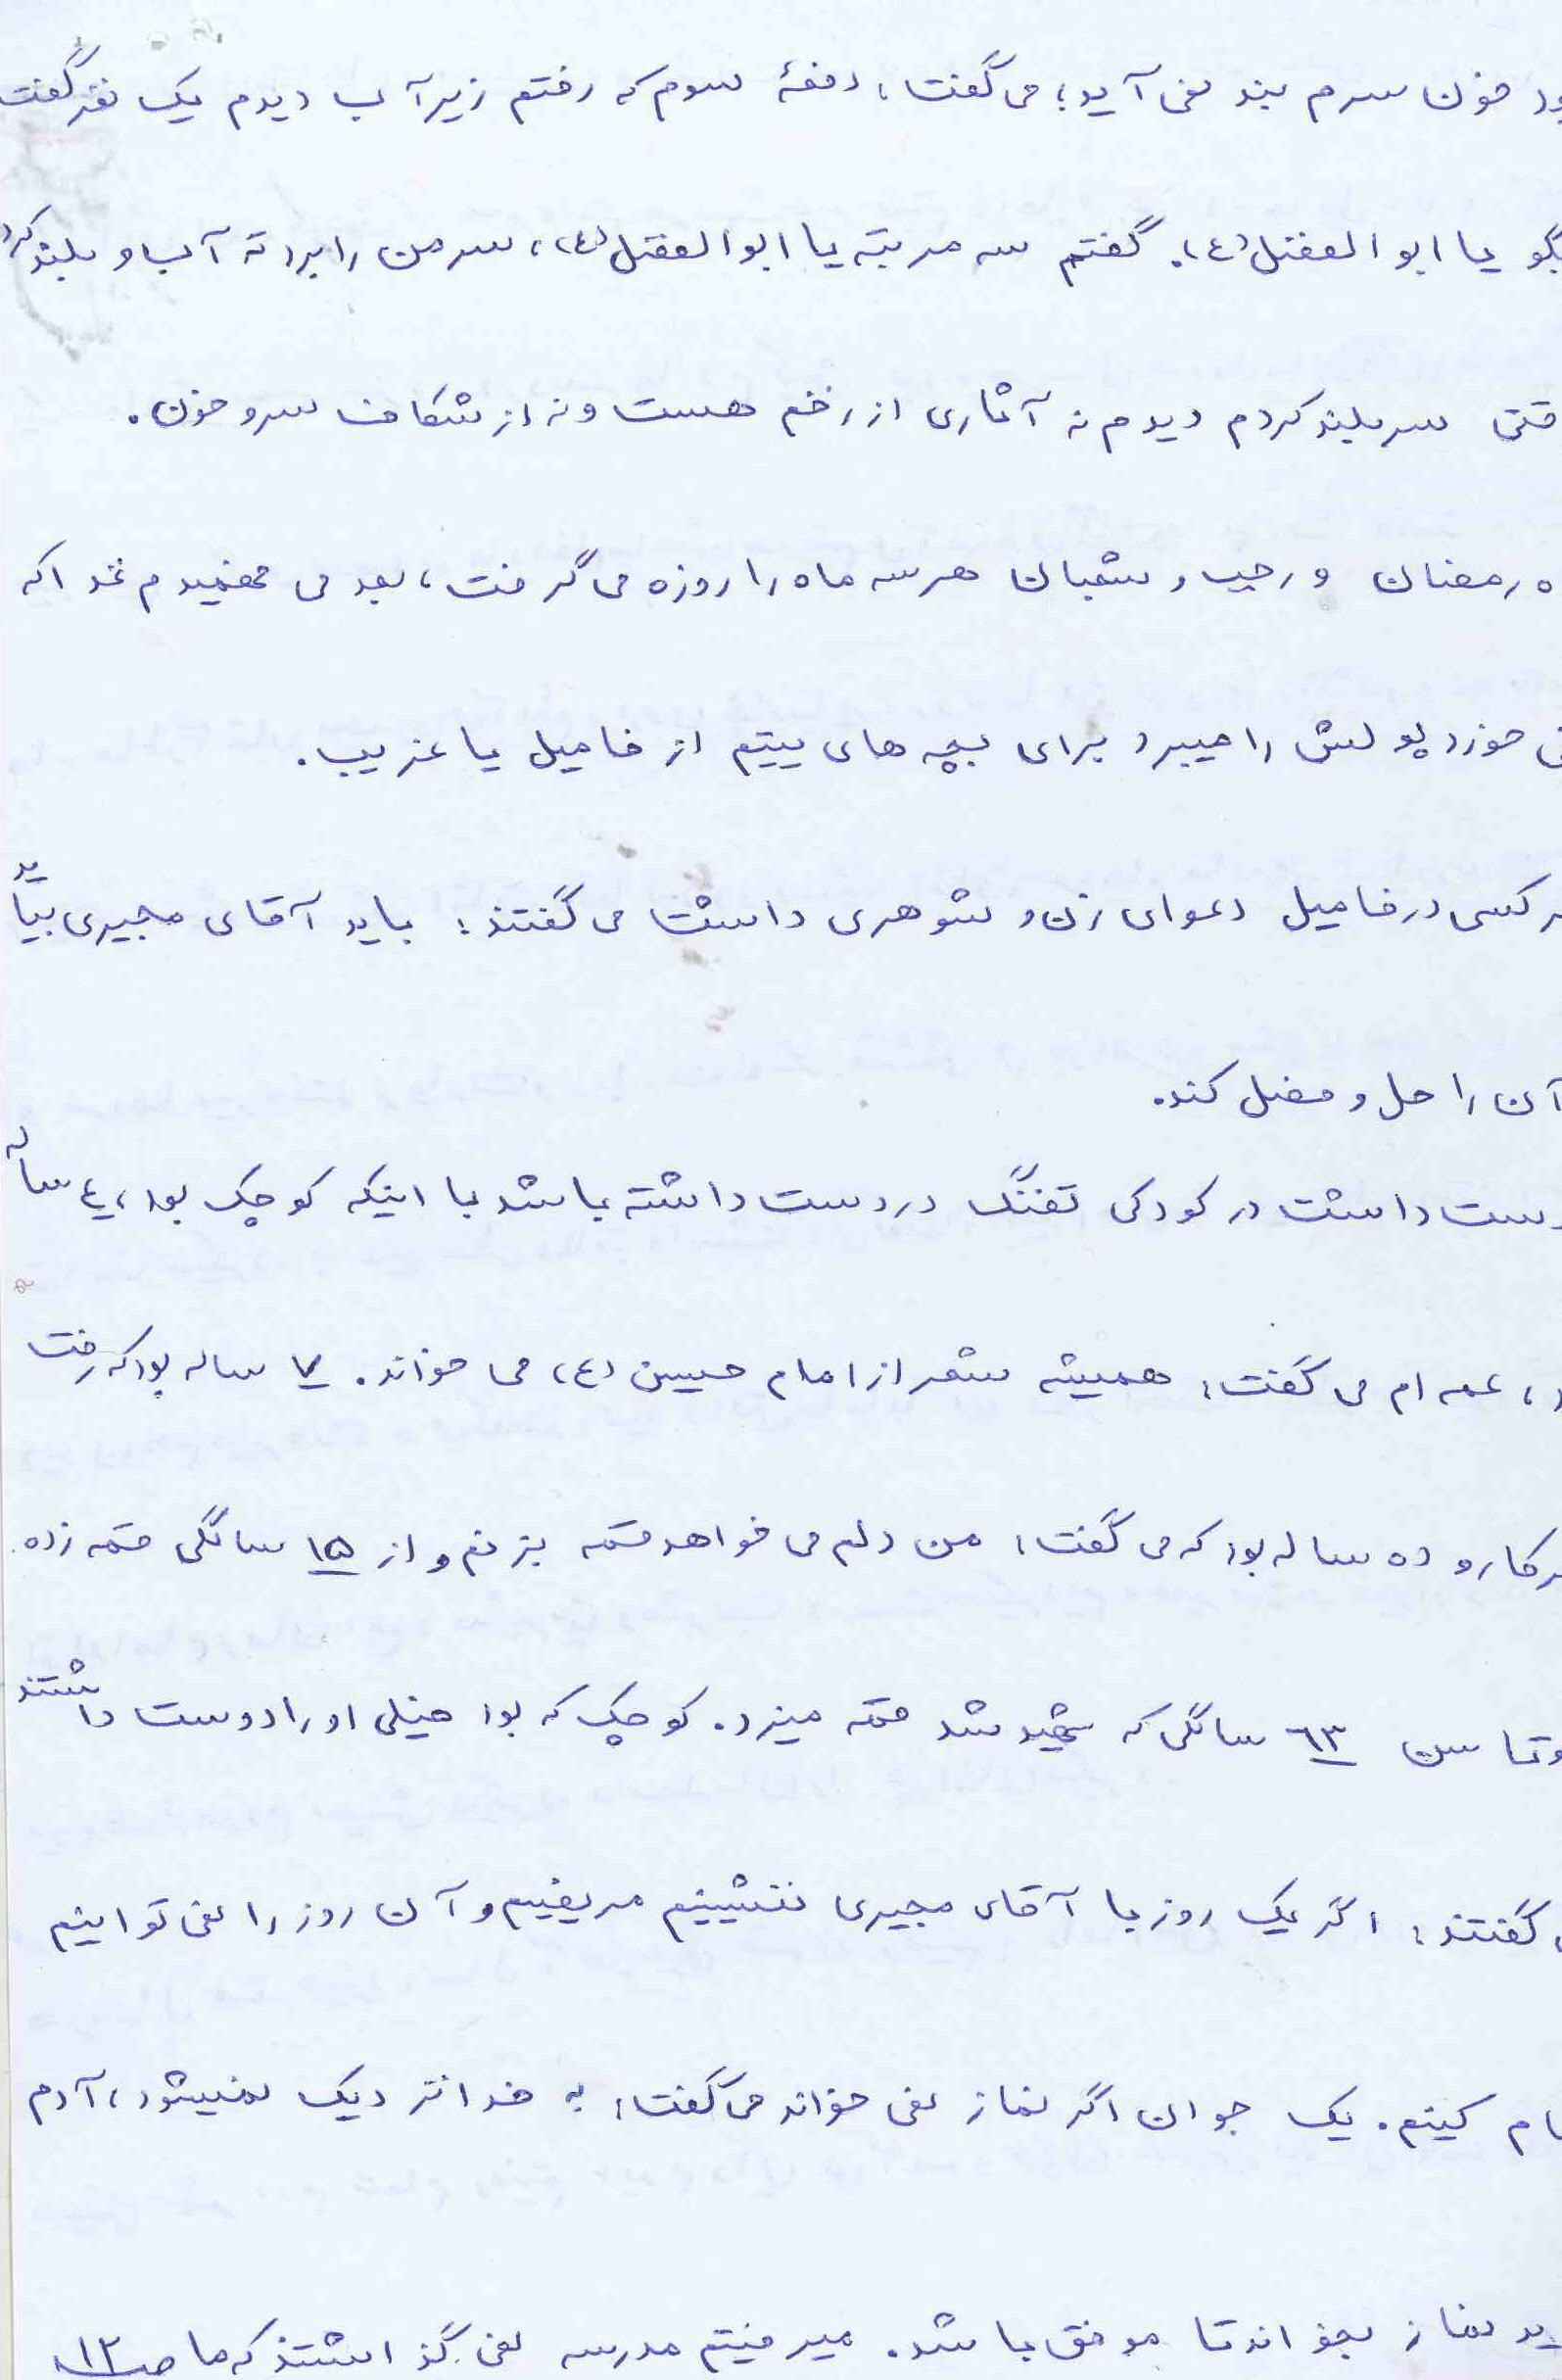 خون سرم بند نمی آید؛ می گفت: دفعۀ سوم که رفتم زیر آب دیدم یک نفر گفت
بگو یا ابوالفضل (ع). گفتم سه مرتبه یا ابوالفضل (ع)، سر من را برد ته آب و بلند کرد
قتی سر بلند کردم دیدم نه آثاری از زخم هست و نه از شکاف سر و خون.
ه رمضان و رجب و شعبان هر سه ماه را روزه می گرفت، بعد می فهمیدم غذا که
خورد پولش را میبرد برای بچه های یتیم از فامیل یا غریب.
ر کسی در فامیل دعوای زن و شوهری داشت می گفتند: باید آقای مجیری بیاید
آن را حل و فصل کند.
وست داشت در کودکی تفنگ در دست داشته باشد با اینکه کوچک بود، ٤ ساله
د، عمه ام می گفت: همیشه شعر از امام حسین (ع) می خواند. ۷ ساله بود که رفت
سر کار و ده ساله بود که می گفت: من دلم می خواهد قمه بزنم و از ۱۵ سالگی قمه زده
و تا سن ٦۳ سالگی که شهید شد قمه میزد. کوچک که بود خیلی او را دوست داشتند
گفتند: اگر یک روز با آقای مجیری ننشینیم مریضیم و آن روز را نمی توانیم
ام کنیم. یک جوان اگر نماز نمی خواند می گفت: به خدا نزدیک نمیشود، آدم
ید نماز بخواند تا موفق باشد. میرفتیم مدرسه نمی گذاشتند که ما ص ۱۲